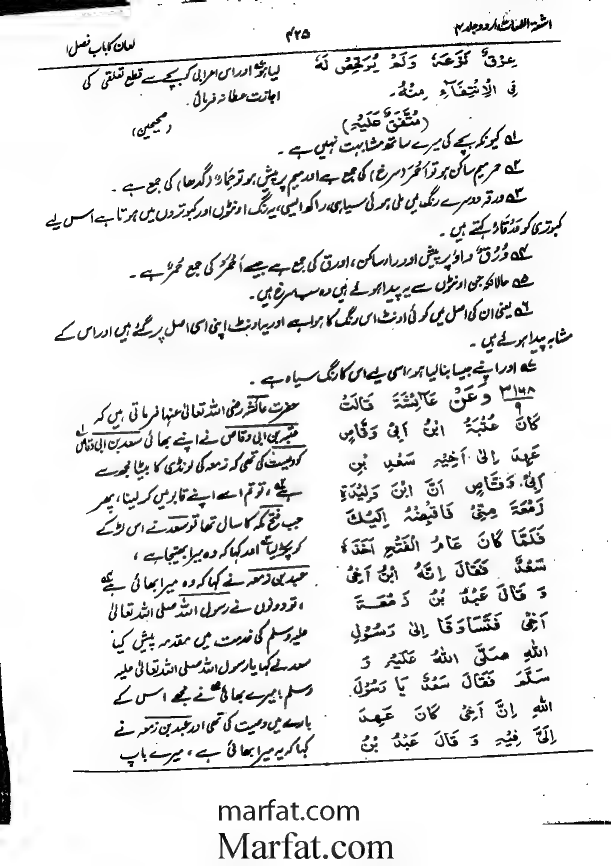 اشعۃ اللمعات اردو جلد ۴
۴۲۵
لعان کا باب فصل ۱
عِرْقٌ نَزَعَهٗ وَلَمْ يُرَخِّصْ لَهٗ
فِی الْاِنْتِفَاءِ مِنْهُ۔
(مُتَّفَقٌ عَلَيْهِ)
لیا ہو اور اس اعرابی کو بچے سے قطع تعلقی کی
اجازت عطا نہ فرمائی
(صحیحین)
۱ کیونکہ بچے کی میرے ساتھ مشابہت نہیں ہے۔
۲ حمر میم ساکن ہو تو اَحْمَر (سرخ) کی جمع ہے اور میم پر پیش ہو تو حِمَارٌ (گدھا) کی جمع ہے۔
۳ ورقہ دوسرے رنگ میں ملی ہوئی سیاہی، راکھ ایسی، یہ رنگ اونٹوں اور کبوتروں میں ہوتا ہے اس لیے
کبوتری کو وَرْقَاءُ کہتے ہیں۔
۴ وُرْقٌ واؤ پر پیش اور را ساکن، اورق کی جمع ہے جیسے اَحْمَرُ کی جمع حُمْرٌ ہے۔
۵ حالانکہ جن اونٹوں سے یہ پیدا ہوئے ہیں وہ سب سرخ ہیں۔
۶ یعنی ان کی اصل میں کوئی اونٹ اس رنگ کا ہوا ہے اور یہ اونٹ اپنی اسی اصل پر گئے ہیں اور اس کے
مشابہ پیدا ہوئے ہیں۔
۷ اور اپنے جیسا بنا لیا ہو، اسی لیے اس کا رنگ سیاہ ہے۔
۳۱۶۸
۹
وَعَنْ عَائِشَةَ قَالَتْ
كَانَ عُتْبَةُ ابْنُ اَبِیْ وَقَّاصٍ
عَهِدَ اِلٰی اَخِيْهِ سَعْدِ بْنِ
اَبِیْ وَقَّاصٍ اَنَّ ابْنَ وَلِيْدَةِ
زَمْعَةَ مِنِّیْ فَاقْبِضْهُ اِلَيْكَ
فَلَمَّا كَانَ عَامُ الْفَتْحِ اَخَذَهٗ
سَعْدٌ فَقَالَ اِنَّهُ ابْنُ اَخِیْ
وَ قَالَ عَبْدُ بْنُ زَمْعَةَ
اَخِیْ فَتَسَاوَقَا اِلٰی رَسُوْلِ
اللهِ صَلَّی اللهُ عَلَيْهِ وَ
سَلَّمَ فَقَالَ سَعْدٌ يَا رَسُوْلَ
اللهِ اِنَّ اَخِیْ كَانَ عَهِدَ
اِلَیَّ فِيْهِ وَ قَالَ عَبْدُ بْنُ
حضرت عائشہ رضی اللہ تعالیٰ عنہا فرماتی ہیں کہ
عتبہ بن ابی وقاص نے اپنے بھائی سعد بن ابی وقاص
کو وصیت کی تھی کہ زمعہ کی لونڈی کا بیٹا مجھ سے
ہے، تو تم اسے اپنے قابو میں کر لینا، پھر
جب فتح مکہ کا سال تھا تو سعد نے اس لڑکے
کو پکڑ لیا اور کہا کہ وہ میرا بھتیجا ہے،
عبد بن زمعہ نے کہا کہ وہ میرا بھائی ہے
، تو دونوں نے رسول اللہ صلی اللہ تعالیٰ
علیہ وسلم کی خدمت میں مقدمہ پیش کیا
سعد نے کہا یا رسول اللہ صلی اللہ تعالیٰ علیہ
وسلم! میرے بھائی نے مجھے اس کے
بارے میں وصیت کی تھی اور عبد بن زمعہ نے
کہا کہ یہ میرا بھائی ہے، میرے باپ
marfat.com
Marfat.com